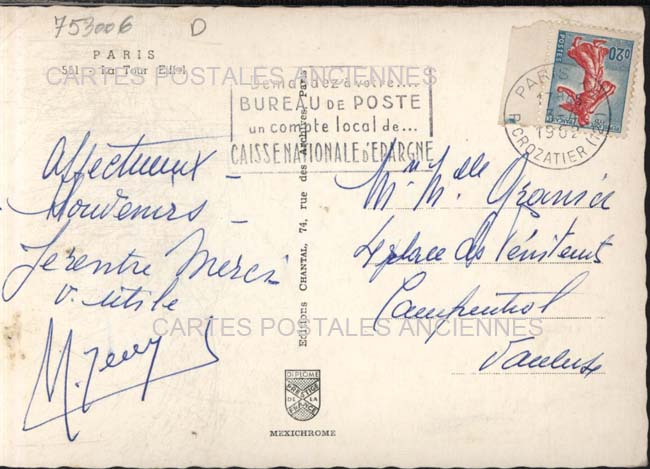 753006 D
PARIS
551 La Tour Eiffel
CARTES POSTALES ANCIENNES
Demandez à votre....
BUREAU DE POSTE
un compte local de...
CAISSE NATIONALE d'EPARGNE
PARIS
1962
R. CROZATIER (12e)
POSTES
0,20
Affectueux
Souvenirs
Je rentre Merc
M.
Editions CHANTAL, 74, rue des Archives, Paris
M. Melle
4 place des Pénitents
Carpentras
Vaucluse
CARTES POSTALES ANCIENNES
DIPLOME
PRESTIGE
DE LA
FRANCE
MEXICHROME